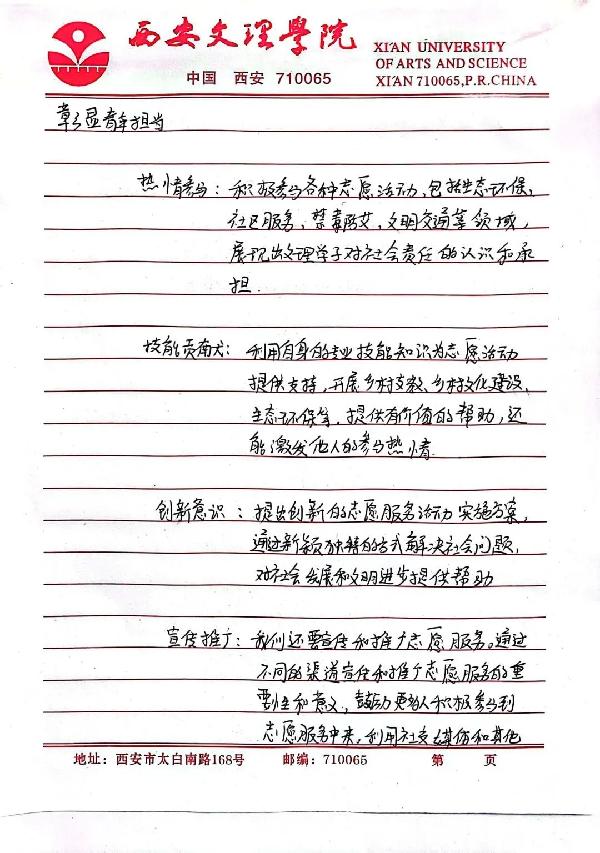 西安文理學院
XI'AN UNIVERSITY
OF ARTS AND SCIENCE
中国 西安 710065
XI'AN 710065,P.R.CHINA
彰显青年担当
热情参与：积极参与各种志愿活动，包括生态环保，
社区服务，禁毒防艾，文明交通等领域，
展现出文理学子对社会责任的认识和承
担.
技能贡献：利用自身的专业技能知识为志愿活动
提供支持，开展乡村支教、乡村文化建设、
生态环保等，提供有价值的帮助，还
能激发他人的参与热情
创新意识：提出创新的志愿服务活动实施方案，
通过新颖独特的方式解决社会问题，
对社会发展和文明进步提供帮助
宣传推广：我们还要宣传和推广志愿服务。通过
不同的渠道宣传和推广志愿服务的重
要性和意义，鼓动更多人积极参与到
志愿服务中来，利用社交媒体和其他
地址：西安市太白南路168号 邮编：710065 第 页